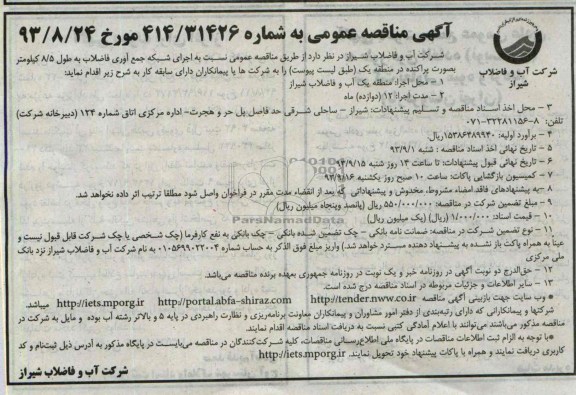 آگهی مناقصه عمومی به شماره ۴۱۴/۳۱۴۲۶ مورخ ۹۳/۸/۲۴
شرکت آب و فاضلاب
شیراز
شرکت آب و فاضلاب شیراز در نظر دارد از طریق مناقصه عمومی نسبت به اجرای شبکه جمع آوری فاضلاب به طول ۸/۵ کیلومتر
بصورت پراکنده در منطقه یک (طبق لیست پیوست) را به شرکت ها یا پیمانکاران دارای سابقه کار به شرح زیر اقدام نماید:
۱ – محل اجرا: منطقه یک آب و فاضلاب شیراز
۲ – مدت اجرا: ۱۲ (دوازده) ماه
۳ – محل اخذ اسناد مناقصه و تسلیم پیشنهادات: شیراز – ساحلی شرقی حد فاصل پل حر و هجرت– اداره مرکزی اتاق شماره ۱۲۴ (دبیرخانه شرکت)
تلفن: ۸-۳۲۲۸۱۱۵۶-۰۷۱
۴ – برآورد اولیه: ۱۵۳۸۶۴۸۹۹۴۰ریال.
۵ – تاریخ نهائی اخذ اسناد مناقصه : شنبه ۹۳/۹/۱
۶ – تاریخ نهائی قبول پیشنهادات: تا ساعت ۱۴ روز شنبه ۹۳/۹/۱۵
۷ – کمیسیون بازگشایی پاکات: ساعت ۱۰ صبح روز یکشنبه ۹۳/۹/۱۶
۸ –به پیشنهادهای فاقد امضاء مشروط، مخدوش و پیشنهاداتی که بعد از انقضاء مدت مقرر در فراخوان واصل شود مطلقا ترتیب اثر داده نخواهد شد.
۹ – مبلغ تضمین شرکت در مناقصه: ۵۵۰/۰۰۰/۰۰۰ ریال (پانصد وپنجاه میلیون ریال)
۱۰ – قیمت اسناد: ۱/۰۰۰/۰۰۰ (ریال) (یک میلیون ریال)
۱۱ – نوع تضمین شرکت در مناقصه: ضمانت نامه بانکی – چک تضمین شده بانکی – چک بانکی به نفع کارفرما (چک شخصی یا چک شرکت قابل قبول نیست و
عینا به همراه پاکت باز نشده به پیشنهاد دهنده مسترد خواهد شد.) واریز مبلغ فوق الذکر به حساب شماره ۰۱۰۵۶۹۹۰۲۲۰۰۴ به نام شرکت آب و فاضلاب شیراز نزد بانک
ملی مرکزی
۱۲ – حق‌الدرج دو نوبت آگهی در روزنامه خبر و یک نوبت در روزنامه جمهوری بعهده برنده مناقصه می‌باشد.
۱۳ – سایر اطلاعات و جزئیات مربوطه در اسناد مناقصه درج شده است.
* وب سایت جهت بازبینی آگهی مناقصه http://tender.nww.co.ir http://portal.abfa-shiraz.com http://iets.mporg.ir میباشد.
شرکتها و پیمانکارانی که دارای رتبه‌بندی از دفتر امور مشاوران و پیمانکاران معاونت برنامه‌ریزی و نظارت راهبردی در پایه ۵ و بالاتر رشته آب بوده و مایل به شرکت در
مناقصه مذکور می‌باشند می‌توانند با اعلام آمادگی کتبی نسبت به دریافت اسناد مناقصه اقدام نمایند.
*با توجه به الزام ثبت اطلاعات مناقصات در پایگاه ملی اطلاع‌رسانی مناقصات، کلیه شرکت‌کنندگان در مناقصه می‌بایست در پایگاه مذکور به آدرس ذیل ثبت‌نام و کد
کاربری دریافت نمایند و همراه با پاکات پیشنهاد خود تحویل نمایند. http://iets.mporg.ir
شرکت آب و فاضلاب شیراز
ParsNamadData